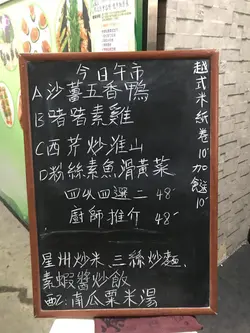 今日午市
A沙薑五香鴨
B啫啫素雞
C西芹炒淮山
D粉絲素魚滑黃菜
四以四選二 48-
廚師推介 48-
星州炒米、三絲炒麵、
素蝦醬炒飯
配:南瓜粟米湯
越式米紙卷10-加餸10-